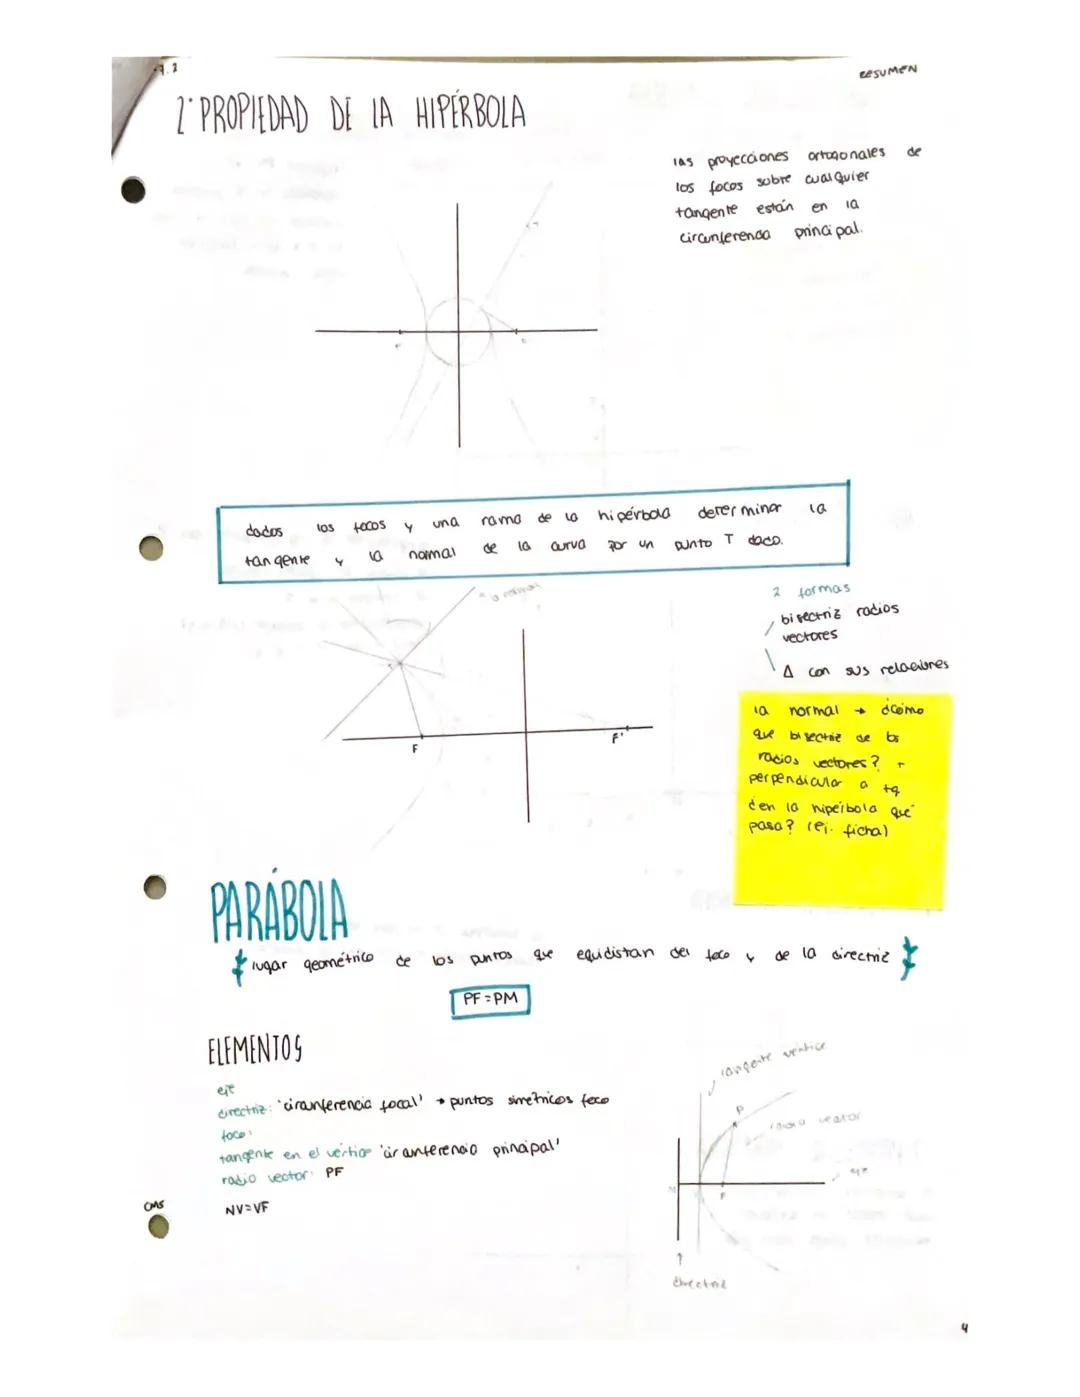 RESUMEN
2ª PROPIEDAD DE LA HIPÉRBOLA
las proyecciones ortogonales de
los focos sobre cualquier
tangente están en la
circunferencia principal.
dados los focos y una rama de la hipérbola determinar la
tangente y la normal de la curva por un punto T dado.
la normal
2 formas
bisectriz radios
vectores
Δ con sus relaciones
F
F'
la normal → ¿cómo
que bisectriz de los
radios vectores? +
perpendicular a tg
¿en la hipérbola qué
pasa? (ej. ficha)
PARÁBOLA
lugar geométrico de los puntos que equidistan del foco y de la directriz
PF = PM
ELEMENTOS
eje
directriz: 'circunferencia focal' → puntos simétricos foco
foco:
tangente en el vértice 'circunferencia principal'
radio vector: PF
NV=VF
tangente vértice
P
radio vector
eje
N
F
directriz
CMS
4